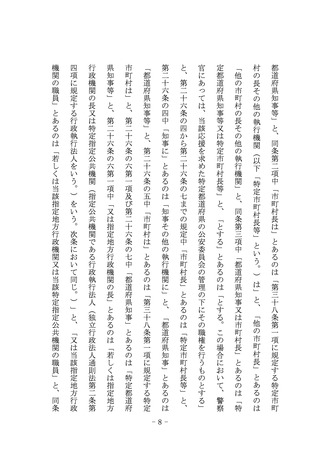 都道府県知事等」と、同条第二項中「市町村長は」とあるのは「第三十八条第一項に規定する特定市町
村の長その他の執行機関（以下「特定市町村長等」という。）は」と、「他の市町村長」とあるのは
「他の市町村の長その他の執行機関」と、同条第三項中「都道府県知事又は市町村長」とあるのは「特
定都道府県知事等又は特定市町村長等」と、「とする」とあるのは「とする。この場合において、警察
官にあっては、当該応援を求めた特定都道府県の公安委員会の管理の下にその職権を行うものとする」
と、第二十六条の四から第二十六条の七までの規定中「市町村長」とあるのは「特定市町村長等」と、
第二十六条の四中「知事に」とあるのは「知事その他の執行機関に」と、「都道府県知事」とあるのは
「都道府県知事等」と、第二十六条の五中「市町村は」とあるのは「第三十八条第一項に規定する特定
市町村は」と、第二十六条の六第一項及び第二十六条の七中「都道府県知事」とあるのは「特定都道府
県知事等」と、第二十六条の六第一項中「又は指定地方行政機関の長」とあるのは「若しくは指定地方
行政機関の長又は特定指定公共機関（指定公共機関である行政執行法人（独立行政法人通則法第二条第
四項に規定する行政執行法人をいう。）をいう。次条において同じ。）」と、「又は当該指定地方行政
機関の職員」とあるのは「若しくは当該指定地方行政機関又は当該特定指定公共機関の職員」と、同条
- 8 -